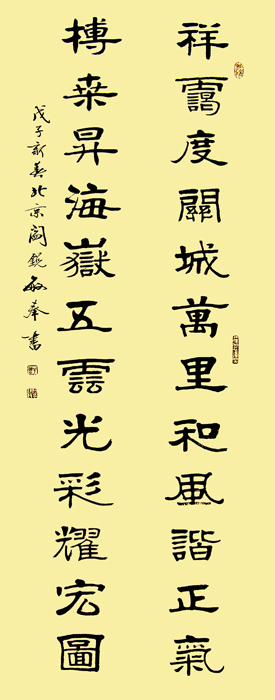 祥靄度關城萬里和風諧正氣
榑桒昇海嶽五雲光彩耀宏圖
戊子新春北京閻銳敏奉書